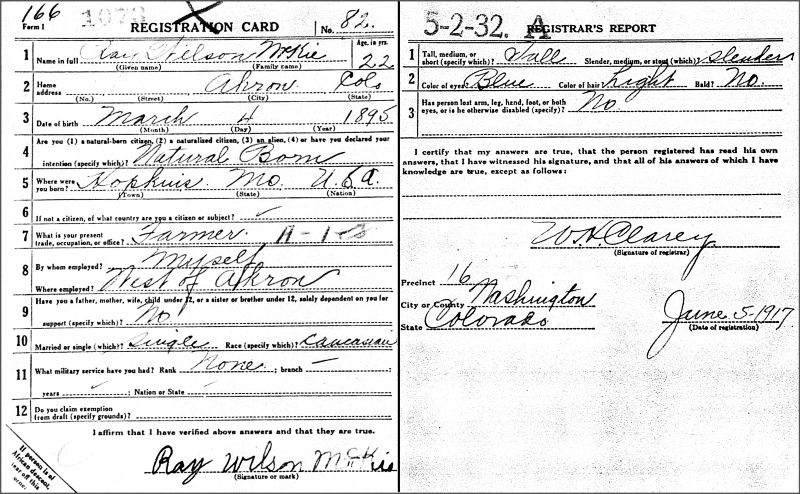 166
1073
Form 1
REGISTRATION CARD No. 82.
1 Name in full Ray Wilson McKie Age, in yrs. 22
(Given name) (Family name)
2 Home address Akron Colo
(No.) (Street) (City) (State)
3 Date of birth March 4 1895
(Month) (Day) (Year)
4 Are you (1) a natural-born citizen, (2) a naturalized citizen, (3) an alien, (4) or have you declared your
intention (specify which)? Natural Born
5 Where were you born? Hopkins Mo. U.S.A.
(Town) (State) (Nation)
6 If not a citizen, of what country are you a citizen or subject?
7 What is your present trade, occupation, or office? Farmer.
8 By whom employed? Myself
Where employed? West of Akron
9 Have you a father, mother, wife, child under 12, or a sister or brother under 12, solely dependent on you for
support (specify which)? No
10 Married or single (which)? Single Race (specify which)? Caucasian
11 What military service have you had? Rank None ; branch
years ; Nation or State
12 Do you claim exemption from draft (specify grounds)?
I affirm that I have verified above answers and that they are true.
Ray Wilson McKie
(Signature or mark)
If person is of
African descent,
tear off this
corner.
5-2-32. A REGISTRAR'S REPORT
1 Tall, medium, or short (specify which)? Tall Slender, medium, or stout (which)? Slender
2 Color of eyes? Blue Color of hair? Light Bald? No.
3 Has person lost arm, leg, hand, foot, or both eyes, or is he otherwise disabled (specify)? No.
I certify that my answers are true, that the person registered has read his own
answers, that I have witnessed his signature, and that all of his answers of which I have
knowledge are true, except as follows:
W.H. Clarey
(Signature of registrar)
Precinct 16
City or County Washington
State Colorado
June 5-1917.
(Date of registration)